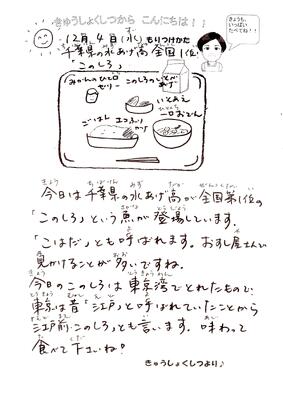 きゅうしょくしつから こんにちは！！
きょうも、
いっぱい
たべてね！！
12月 4日(水) もりつけかた
千葉県の水あげ高 全国1位
「このしろ」
みかんのひとロ
ゼリー
このしろのいそべ
あげ
いとあえ
ひとくち
一口おでん
ごはん
今日は千葉県の水あげ高が全国第1位の
「このしろ」という魚が登場しています。
「こはだ」とも呼ばれます。おすし屋さんで
見かけることが多いですね。
今日のこのしろは東京湾でとれたもので、
東京は昔「江戸」と呼ばれていたことから
江戸前このしろとも言います。味わって
食べて下さいね！
きゅうしょくしつより♪